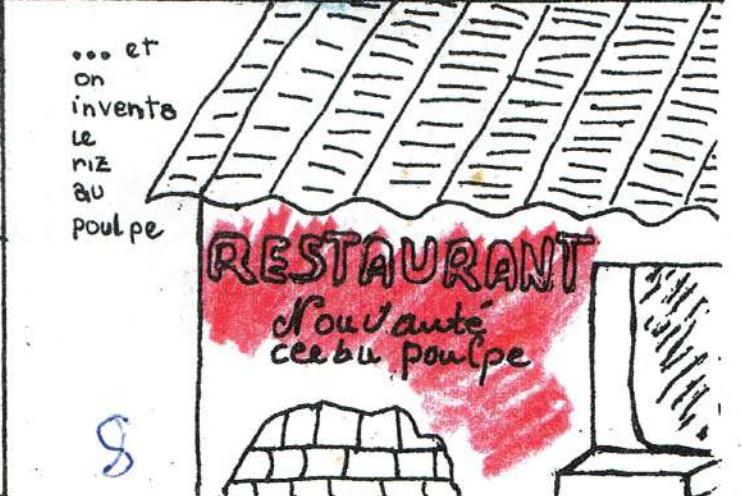 ... et
on
inventa
le
riz
au
poulpe
RESTAURANT
Nouvauté
ceebu poulpe
8